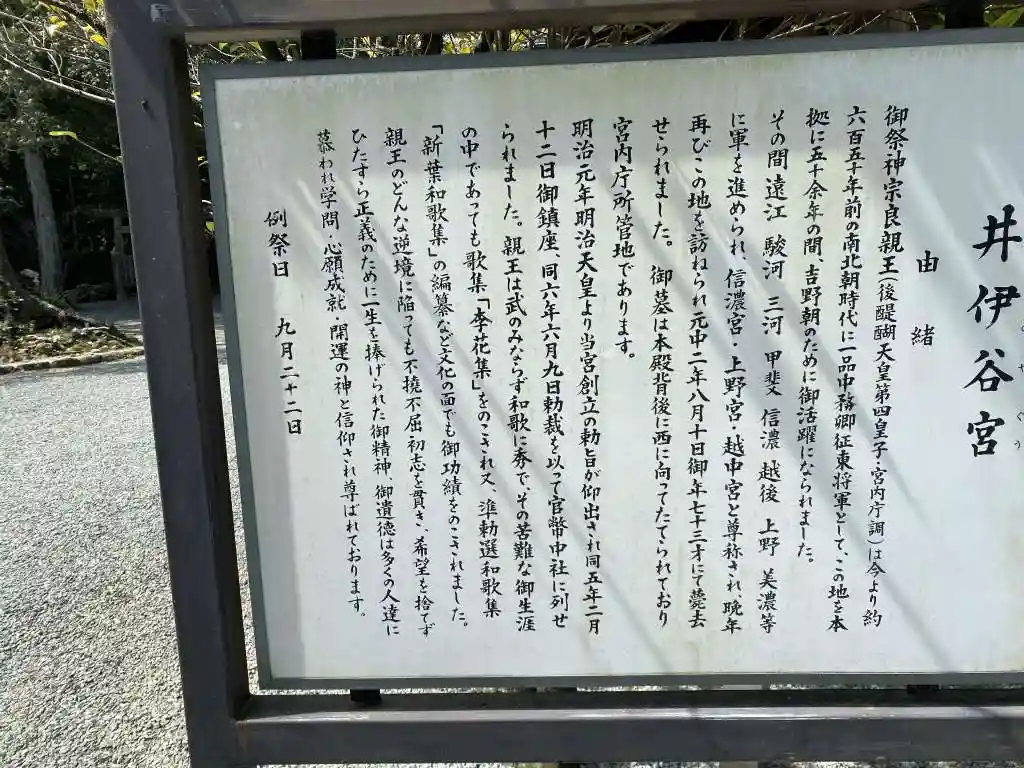 井伊谷宮
由緒
御祭神宗良親王(後醍醐天皇第四皇子・宮内庁調)は今より約
六百五十年前の南北朝時代に一品中務卿征東将軍として、この地を本
拠に五十余年の間、吉野朝のために御活躍になられました。
その間遠江 駿河 三河 甲斐 信濃 越後 上野 美濃等
に軍を進められ、信濃宮・上野宮・越中宮と尊称され、晩年
再びこの地を訪ねられ元中二年八月十日御年七十三才にて薨去
せられました。 御墓は本殿背後に西に向ってたてられており
宮内庁所管地であります。
明治元年明治天皇より当宮創立の勅旨が仰出され同五年二月
十二日御鎮座、同六年六月九日勅裁を以って官幣中社に列せ
られました。親王は武のみならず和歌に秀で、その苦難な御生涯
の中であっても歌集「李花集」をのこされ又、準勅選和歌集
「新葉和歌集」の編纂など文化の面でも御功績をのこされました。
親王のどんな逆境に陥っても不撓不屈初志を貫き、希望を捨てず
ひたすら正義のために一生を捧げられた御精神、御遺徳は多くの人達に
慕われ学問・心願成就・開運の神と信仰され尊ばれております。
例祭日 九月二十二日